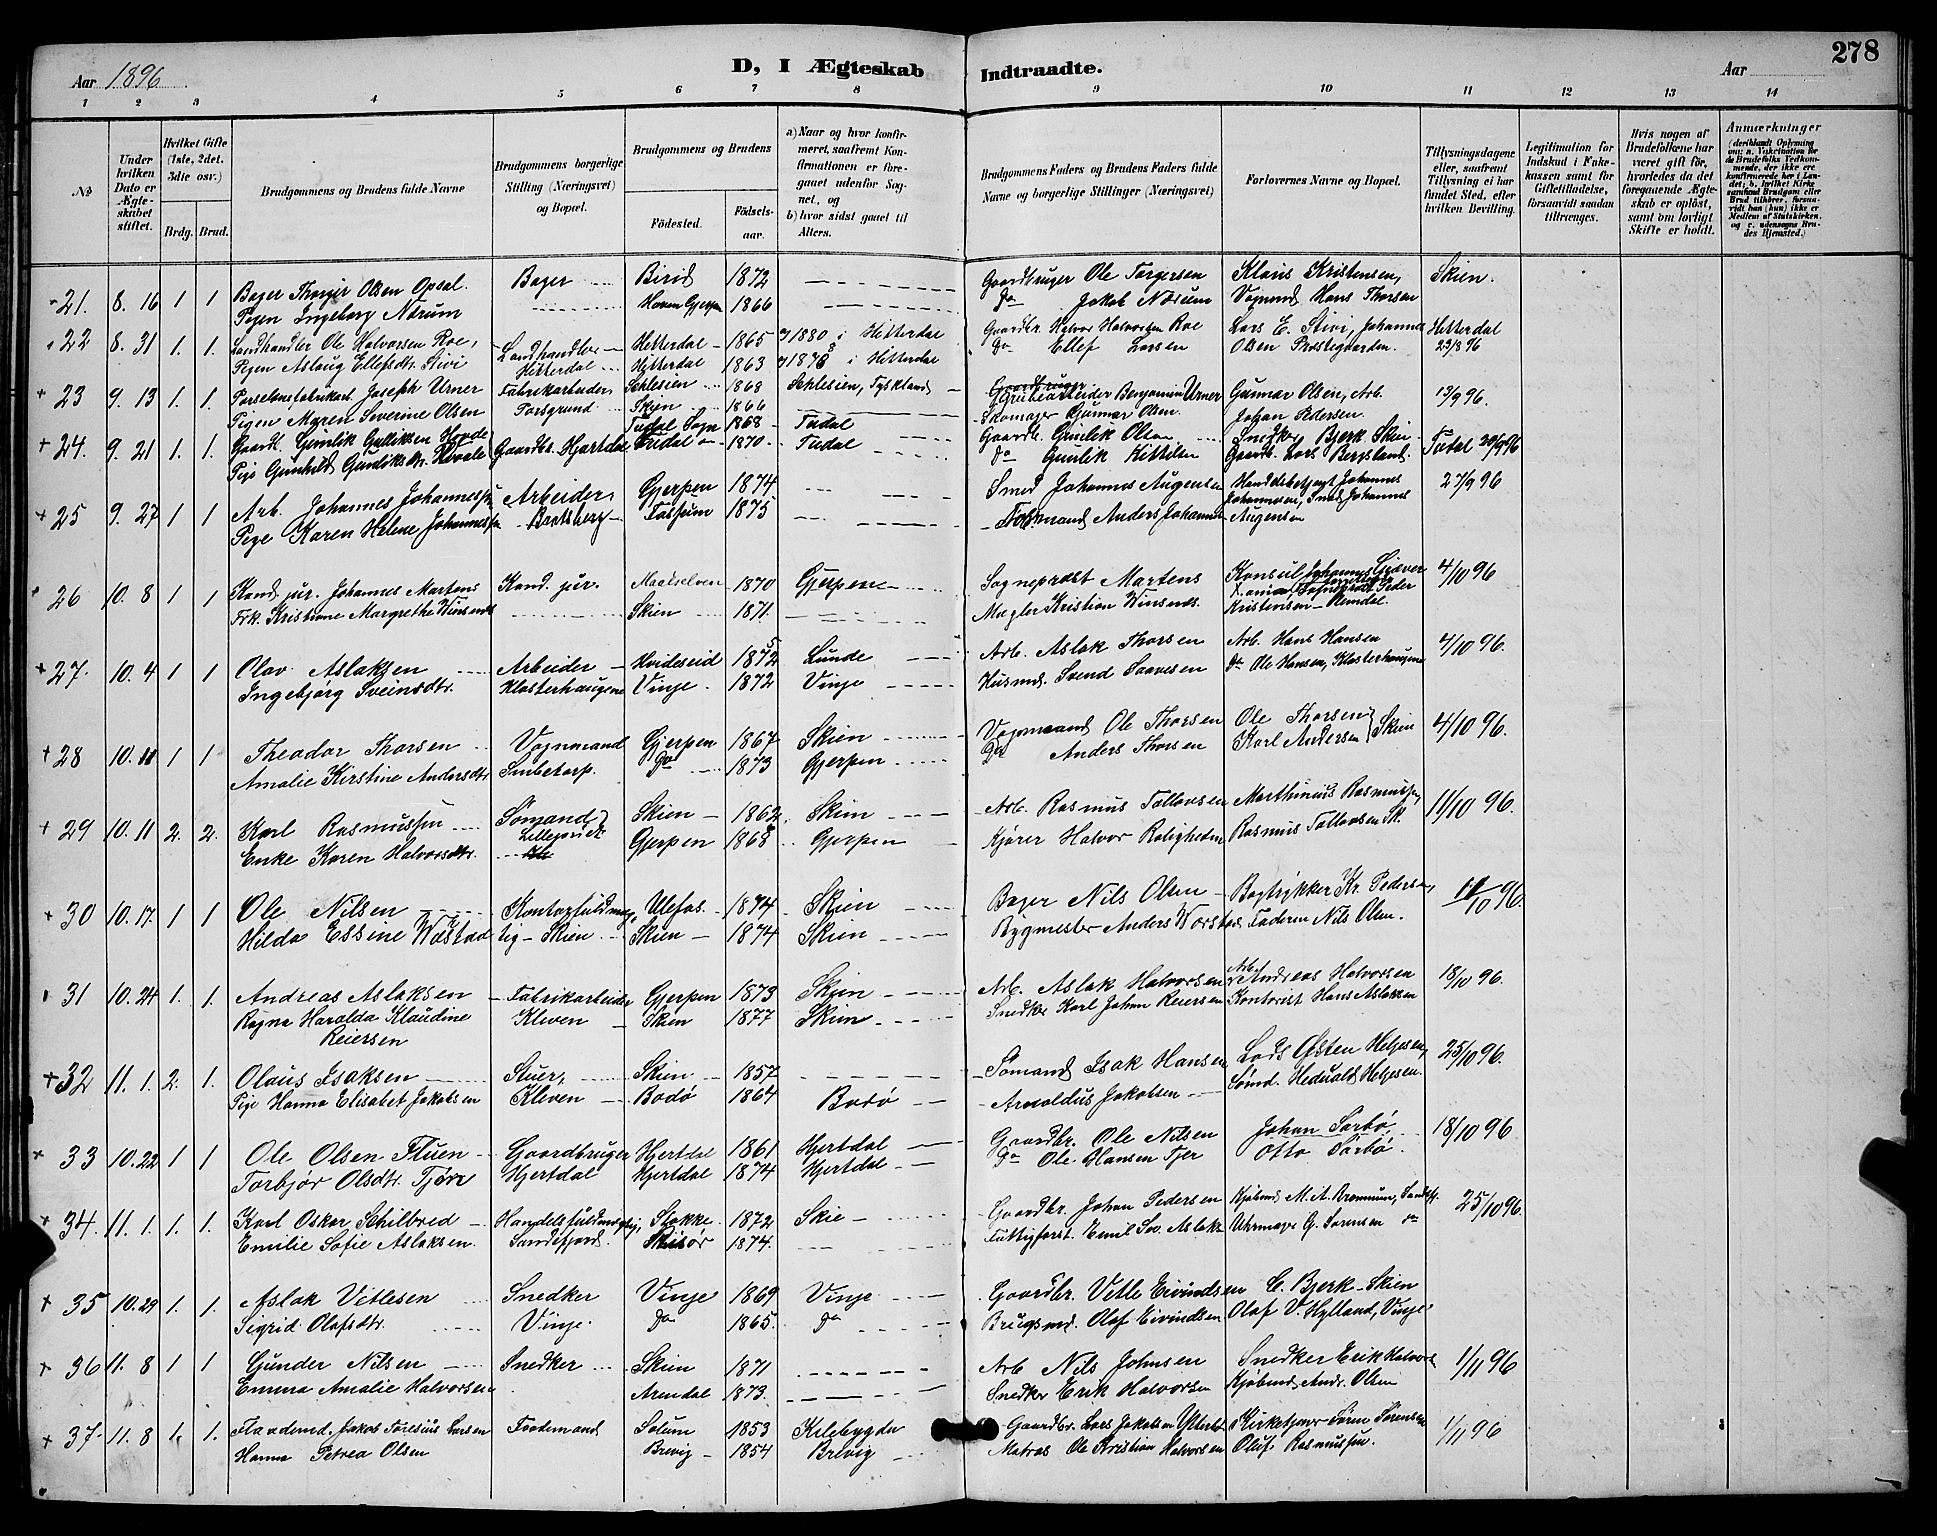 278
Aar 1896
D, I Ægteskab Indtraadte.
Aar
1 2 3 4 5 6 7 8 9 10 11 12 13 14
No
Under hvilken Dato er Ægteskabet stiftet.
Hvilket Gifte (1ste, 2det, 3die osv.)
Brdg. Brud.
Brudgommens og Brudens fulde Navne
Brudgommens borgerlige Stilling (Næringsvei) og Bopæl.
Brudgommens og Brudens
Födested. Födselsaar.
a) Naar og hvor konfirmeret, saafremt Konfirmationen er foregaaet udenfor Sognet, og
b) hvor sidst gaaet til Alters.
Brudgommens Faders og Brudens Faders fulde Navne og borgerlige Stillinger (Næringsvei)
Forlovernes Navne og Bopæl.
Tillysningsdagene eller, saafremt Tillysning ei har fundet Sted, efter hvilken Bevilling.
Legitimation for Indskud i Enkekassen samt for Giftetilladelse, forsaavidt saadan tiltrænges.
Hvis nogen af Brudefolkene har været gift før, hvorledes da det foregaaende Ægteskab er oplöst, samt om lovligt Skifte er holdt.
Anmærkninger
21. 8. 16 1 1 Bager Thorger Olsen Opsal. Bager Birid 1872 Gaardbruger Ole Torgersen Klaus Kristensen, Skien.
Pigen Ingeborg Nærum Hoven Gjerpen 1866 do Jakob Nærum Vognmd Hans Thorsen
22 8. 31 1. 1. Landhandler Ole Halvorsen Roe, Landhandler Hitterdal 1865 1880 i Hitterdal Gaardbr. Halvor Halvorsen Roe Lars E. Stivi, Johannes Hitterdal
Pigen Aslaug Ellefsdtr. Stivi Hitterdal Hitterdal 1863 1878 i Hitterdal do Ellef Larsen Olsen Prestegaarden. 23/8 96
23 9. 13 1. 1. Porselensfabrikarb. Joseph Urner Fabrikarbeider Schlesien 1868 Schlesien, Tyskland Grubearbeider Benjamin Urner Gunnar Olsen, Arb. 13/9 96.
Pigen Maren Severine Olsen Porsgrund Skien 1866 Skomager Gunnar Olsen. Johan Pedersen.
24. 9. 21 1. 1. Gaardb. Gunlik Gulliksen Hovde Gaardbr. Hjartdal Tudal Sogn 1868 Tudal Gaardb. Gunlik Olsen Snedker Bjerk Skien Tudal 20/9 96
Pige Gunhild Gunliksdtr. Hovale Tudal 1870 Tudal do Gunlik Kittilsen Gaardb. Lars Bergsland.
25 9. 27 1 1 Arb. Johannes Johannessen Arbeider Gjerpen 1874 Smed Johannes Augensen Handelsbetjent Johannes 27/9 96
Pige Karen Helene Johannessen Bratsberg Fossum 1875 Formand Anders Johannes Johannesen, Smed Johannes
Augensen
26 10. 8 1 1 Kand. jur. Johannes Martens Kand. jur. Maalselven 1870 Gjerpen Sogneprest Martens Konsul Johannes Giæver 4/10 96
Frk. Kristiane Margrethe Winsnes Skien 1871. Mægler Kristian Winsnes. Tromsø, Sogneprest Peder
Kristensen
27. 10. 4 1 1 Olav Aslaksen Arbeider Hvideseid 1875 Lunde Arb. Aslak Thorsen Arb. Hans Hansen 4/10 96.
Ingebjørg Sveinsdtr. Klosterhaugene Vinje. 1872 Vinje Husmd. Svend Saavesen do Ole Hansen, Klosterhaugene
28 10. 11 1 1 Theodor Thorsen Vognmand Gjerpen 1867 Skien Vognmand Ole Thorsen Ole Thorsen Skien 4/10 96.
Amalie Kirstine Andersdtr Smbetorp. do 1873 Gjerpen do Anders Thorsen Karl Andersen
29 10. 11 2. 2. Karl Rasmussen Sømand Skien 1862. Skien Arb. Rasmus Tollevsen Marthinius Rasmussen, 11/10 96.
Enke Karen Halvorsdtr. Lillegaden Gjerpen 1868 Gjerpen Kjører Halvor Roligheden Rasmus Tollevsen Sk.
30 10. 17. 1 1 Ole Nilsen Kontorfuldmæg- Ulefos. 1874 Skien Bager Nils Olsen Bogtrykker Kr. Pedersen, 11/10 96.
Hilda Essine Worstad tig Skien Skien 1874 Skien Bygmester Anders Worstad Faderen Nils Olsen.
31 10. 24 1. 1. Andreas Aslaksen Fabrikarbeider Gjerpen 1873 Skien Arb. Aslak Halvorsen Arb. Andreas Halvorsen 18/10 96.
Ragna Haralda Klaudine Kleven Skien 1877 Skien Snedker Karl Johan Reiersen Kontorist Hans Aslaksen
Reiersen
32 11. 1. 2. 1. Olaus Isaksen Stuer, Skien 1857 Sømand Isak Hansen Lods Østen Helgesen, 25/10 96.
Pige Hanna Elisabet Jakobsen Kleven Bodø 1864 Bodø Arnoldus Jakobsen Sømd. Hedvald Helgesen.
33 10. 22 1 1 Ole Olsen Fluen Gaardbruger Hjertdal 1861 Hjertdal Gaardbr. Ole Nilsen Johan Sørbø, 18/10 96
Torbjør Olsdtr. Tjøre Hjertdal Hjertdal 1874 Hjertdal do Ole Hansen Tjer Otto Sørbø.
34. 11. 1. 1. 1. Karl Oskar Schilbred Handelsfuldmægtig, Stokke 1872 Skie Gaardbr. Johan Pedersen Kjøbmd. M. A. Brommun, Sandefj. 25/10 96.
Emilie Sofie Aslaksen. Sandefjord. Risør 1874. Fattigforst. Emil Sev. Aslaks. Uhrmager G. Sørensen do
35 10. 29 1. 1. Aslak Vetlesen Snedker Vinje 1869 Vinje Gaardbr. Vetle Eivindsen C. Bjerk Skien
Sigrid Olafsdtr. Vinje. do 1865. do Brugsmd. Olaf Eivindsen Olaf V. Hylland, Vinje
36 11. 8 1 1 Gunder Nilsen Snedker Skien 1871 Arb. Nils Johnsen Snedker Erik Halvors 1/11 96
Emma Amalie Halvorsen Arendal 1873. Snedker Erik Halvorsen Kjøbmd. Andr. Olsen
37. 11. 8 1. 1. Jakob Toresius Larsen Solum 1853 Kilebygden Gaardbr. Lars Jakobsen Kirketjener Søren Sørensen 1/11 96
Hanna Petrea Olsen Brevig 1854 Brevig Matros Ole Kristian Halvorsen Oluf Rasmussen.